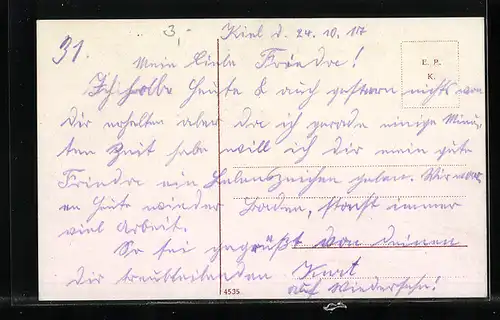 31. 3,-
Kiel d. 24. 10. 17
E. P.
K.
Mein liebe Friedre!
Ich habe heute & auch gestern nichts von
Dir erhalten aber da ich gerade einige Minu-
ten Zeit habe will ich dir mein gute
Friedre ein Lebenszeichen geben. Wir
en heute wieder Baden, sonst immer
viel Arbeit.
So sei gegrüßt von Deinen
Dir treubleibenden Kurt
auf Wiedersehn!
4535